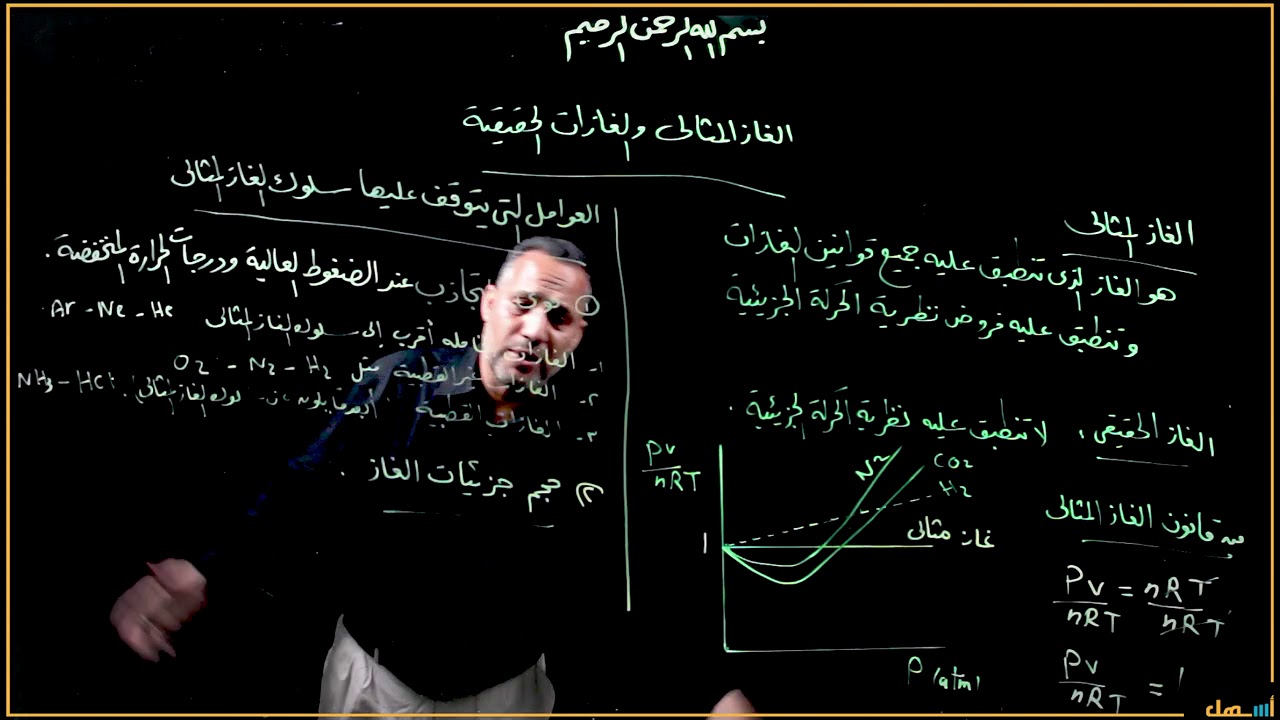 بسم الله الرحمن الرحيم
الغاز المثالى والغازات الحقيقية
الغاز المثالى
هو الغاز الذى تنطبق عليه جميع قوانين الغازات
وتنطبق عليه فروض نظرية الحركة الجزيئية
الغاز الحقيقى، لا تنطبق عليه نظرية الحركة الجزيئية.
قانون الغاز المثالى
PV/nRT = nRT/nRT
PV/nRT = 1
PV/nRT
1
N2
CO2
H2
غاز مثالى
P (atm)
العوامل التى يتوقف عليها سلوك الغاز المثالى
① التجاذب عند الضغوط العالية ودرجات الحرارة المنخفضة.
١- الغازات أقرب إلى سلوك الغاز المثالى Ar - Ne - He
٢- الغازات غير القطبية مثل O2 - N2 - H2
٣- الغازات القطبية الغاز المثالى NH3 - HCl
٢) حجم جزيئات الغاز.
أسهل